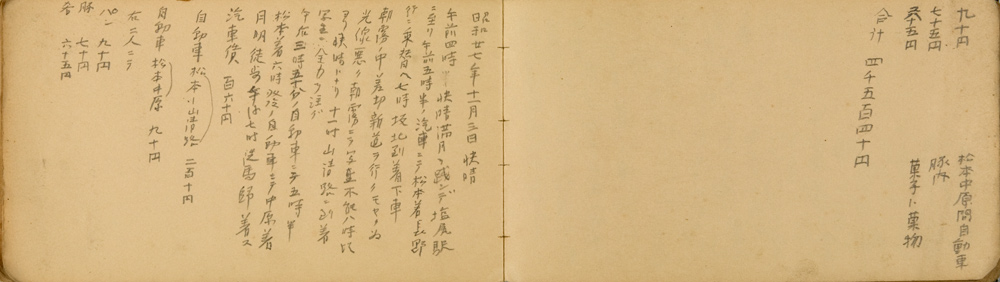 九十円 松本中原間自動車
七十五円 豚肉
六十五円 菓子に菓物
合計 四千五百四十円
昭和廿七年十一月三日快晴
午前四時 快晴満月ヲ踐ンデ塩尻駅
ニ至リ午前五時半ノ汽車ニテ松本着長野
行ニ乗替ヘ七時坂北到着下車
朝霧ノ中差切新道ヲ行ク
光線悪ク朝霧ニテ写真不能八時頃
ヨリ快晴トナリ十一時山清路ニ到着
写真ニ全力ヲ注グ
午后三時五十分ノ自動車ニテ五時半
松本着六時発ノ自動車ニテ中原着
月明徒歩 七時 帰着ス
汽車賃 百六十円
自動車 松本山清路 二百十円
自動車 松本中原 九十円
右二人ニテ
九十円
豚 七十円
呑 六十五円